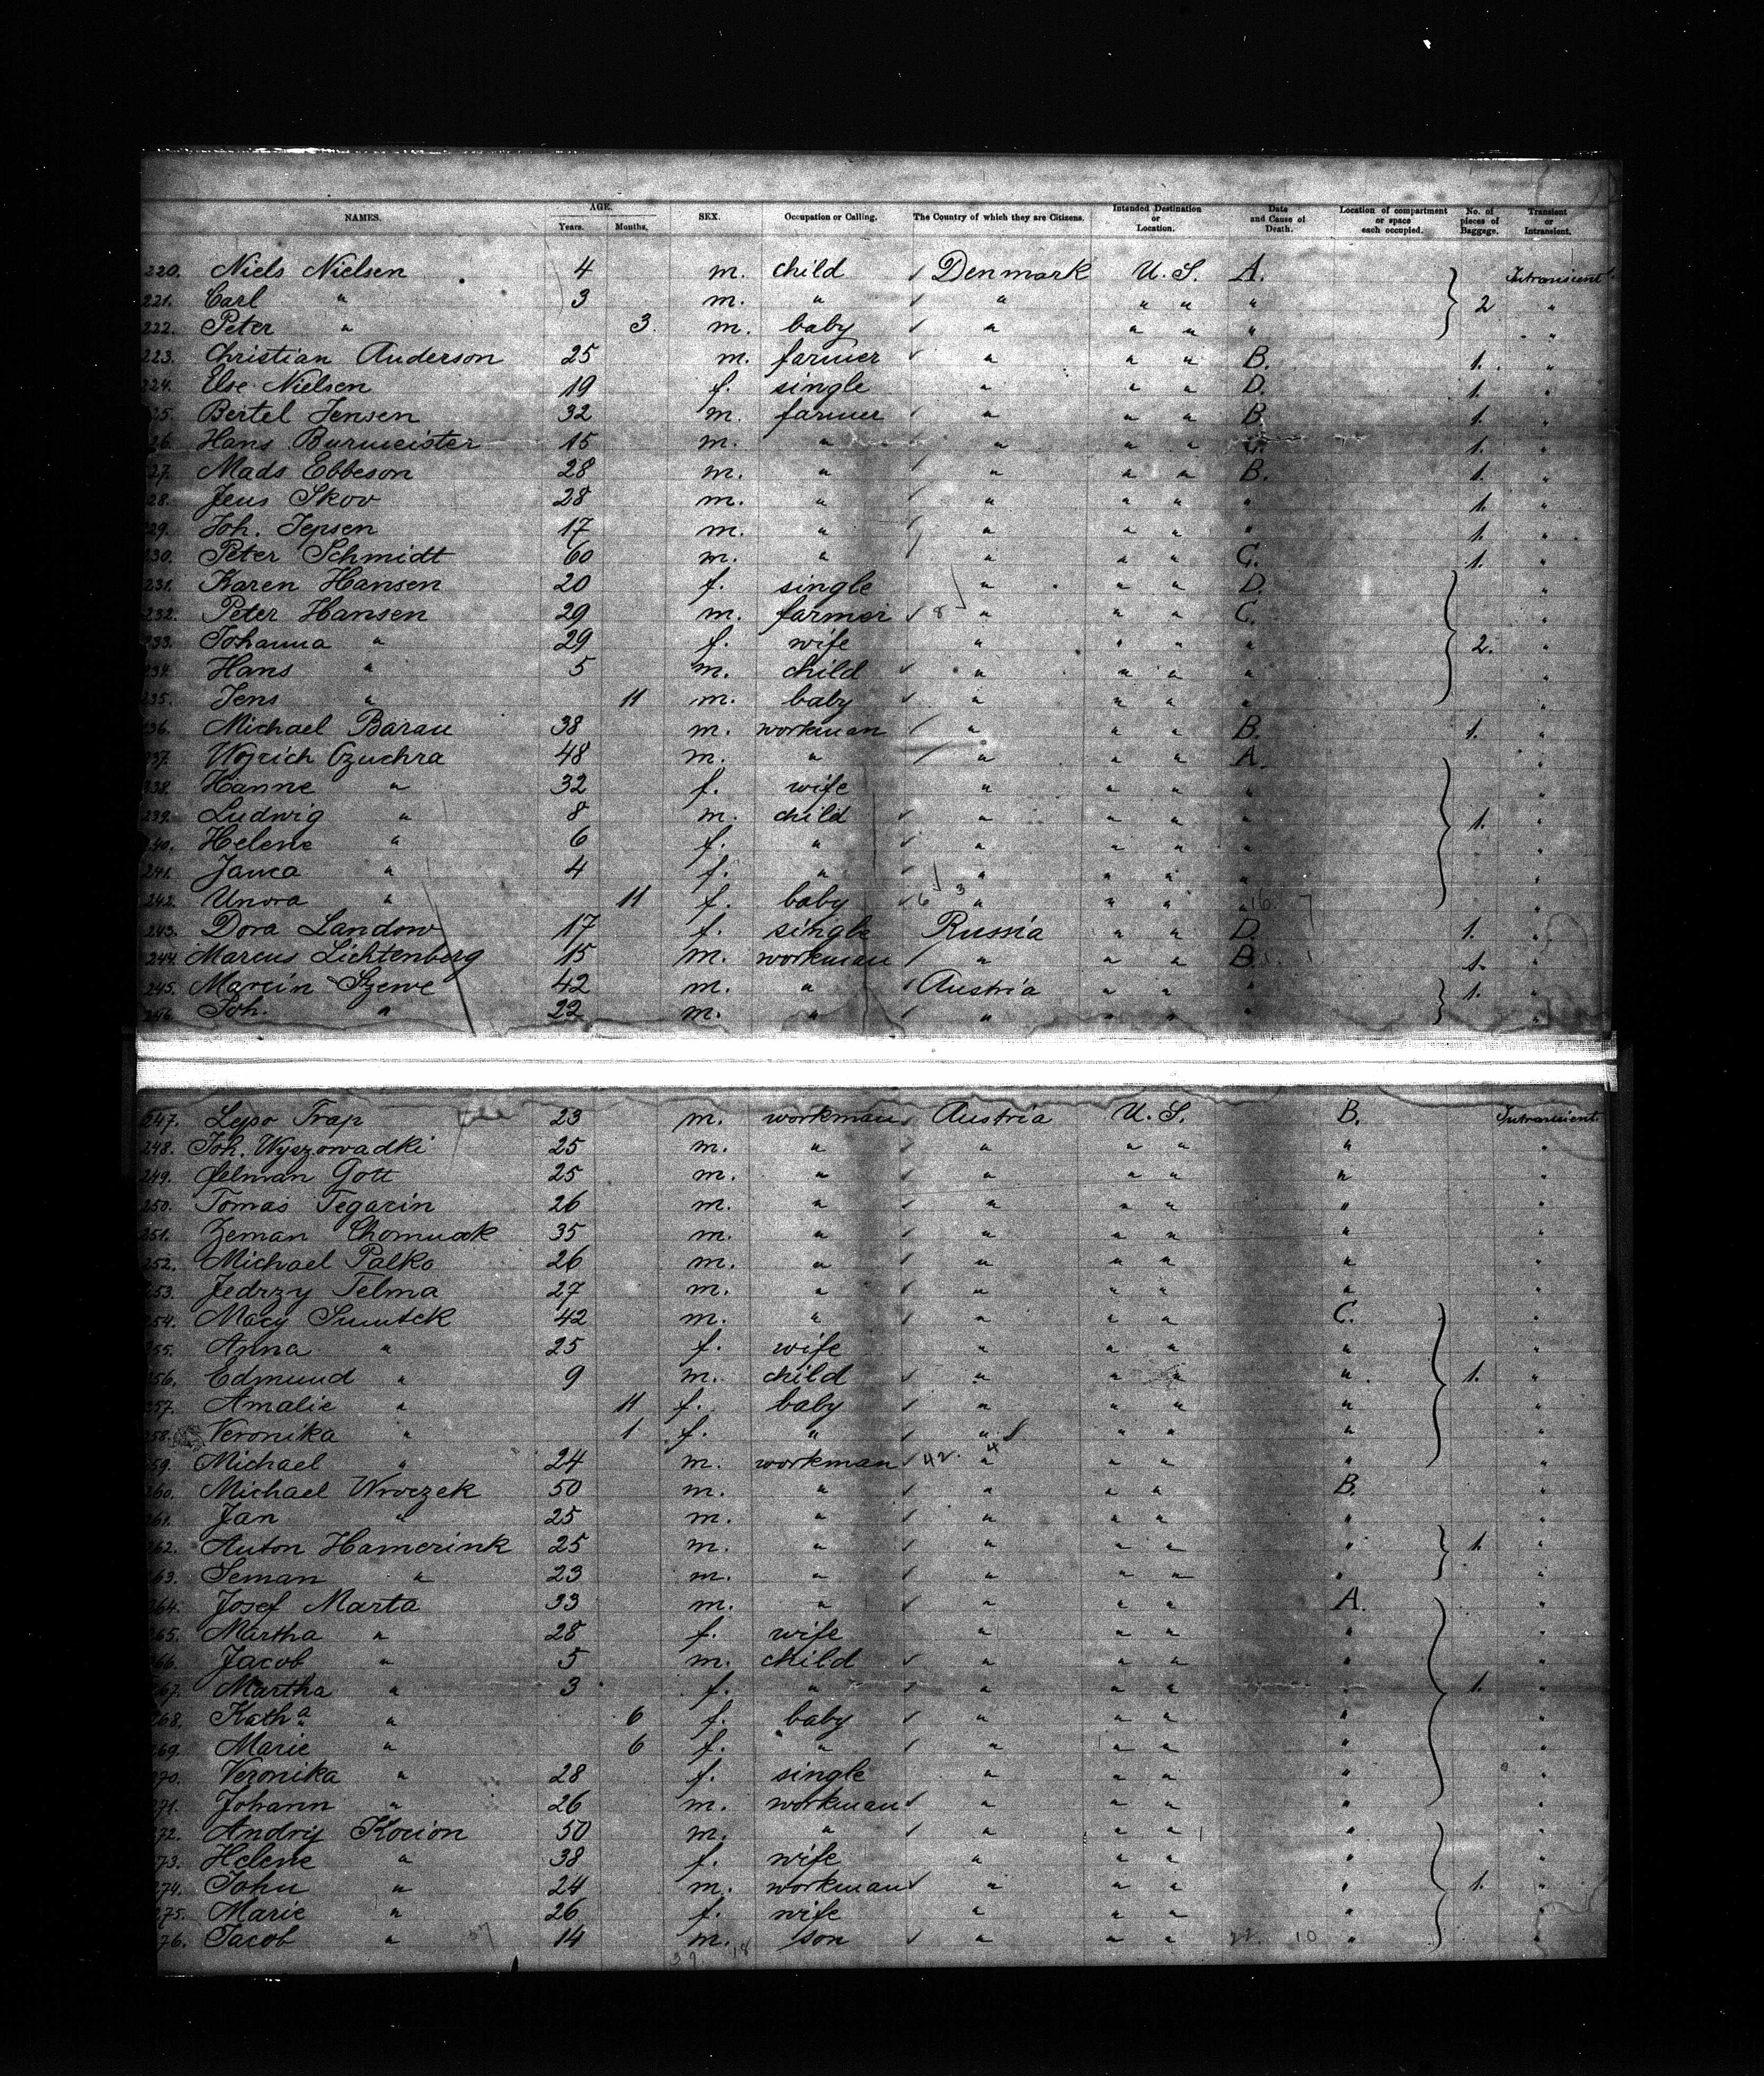 NAMES. AGE. Years. Months. SEX. Occupation or Calling. The Country of which they are Citizens. Intended Destination or Location. Date and Cause of Death. Location of compartment or space each occupied. No. of pieces of Baggage. Transient or Intransient.
220. Niels Nielsen 4 m. child Denmark U. S. A. Intransient
221. Carl " 3 m. " " " " " 2 "
222. Peter " 3. m. baby " " " " "
223. Christian Anderson 25 m. farmer " " " B. 1. "
224. Else Nielsen 19 f. single " " " D. 1. "
225. Bertel Jensen 32 m. farmer " " " B. 1. "
226. Hans Burmeister 15 m. " " " " 1. "
227. Mads Ebbeson 28 m. " " " " B. 1. "
228. Jens Skov 28 m. " " " " " 1. "
229. Joh. Jepsen 17 m. " " " " " 1. "
230. Peter Schmidt 60 m. " " " " C. 1. "
231. Karen Hansen 20 f. single " " " D. "
232. Peter Hansen 29 m. farmer 8 " " " C. "
233. Johanna " 29 f. wife " " " " 2. "
234. Hans " 5 m. child " " " " "
235. Jens " 11 m. baby " " " " "
236. Michael Baran 38 m. workman " " " B. 1. "
237. Wojcich Czuchra 48 m. " " " " A. "
238. Hanne " 32 f. wife " " " " "
239. Ludwig " 8 m. child " " " " 1. "
240. Helene " 6 f. " " " " " "
241. Janca " 4 f. " " " " " "
242. Unora " 11 f. baby 6 3 " " " " 16 7 "
243. Dora Landow 17 f. single Russia " " D. 1. "
244. Marcus Lichtenberg 15 m. workman " " " B. 1. "
245. Marcin Szewe 42 m. " Austria " " " 1. "
246. Joh. " 22 m. " " " " " "
247. Lepo Trap 23 m. workman Austria U. S. B. Intransient
248. Joh. Wyszowadki 25 m. " " " " " "
249. Selman Gott 25 m. " " " " " "
250. Tomas Tegarin 26 m. " " " " " "
251. Zeman Chomuak 35 m. " " " " " "
252. Michael Palko 26 m. " " " " " "
253. Jedrzy Telma 27 m. " " " " " "
254. Macy Smutek 42 m. " " " " C. "
255. Anna " 25 f. wife " " " " "
256. Edmund " 9 m. child " " " " 1. "
257. Amalie " 11 f. baby " " " " "
258. Veronika " 1 f. " " " " " "
259. Michael " 24 m. workman 42 4 " " " " "
260. Michael Wroczek 50 m. " " " " B. "
261. Jan " 25 m. " " " " " "
262. Anton Hamerink 25 m. " " " " " 1. "
263. Seman " 23 m. " " " " " "
264. Josef Marta 33 m. " " " " A. "
265. Martha " 28 f. wife " " " " "
266. Jacob " 5 m. child " " " " "
267. Martha " 3 f. " " " " " 1. "
268. Katha " 6 f. baby " " " " "
269. Marie " 6 f. " " " " " "
270. Veronika " 28 f. single " " " " "
271. Johann " 26 m. workman " " " " "
272. Andrij Kocion 50 m. " " " " " "
273. Helene " 38 f. wife " " " " "
274. John " 24 m. workman " " " " 1. "
275. Marie " 26 f. wife " " " " "
276. Jacob " 14 m. son " " " 22 10 " "
39. 18